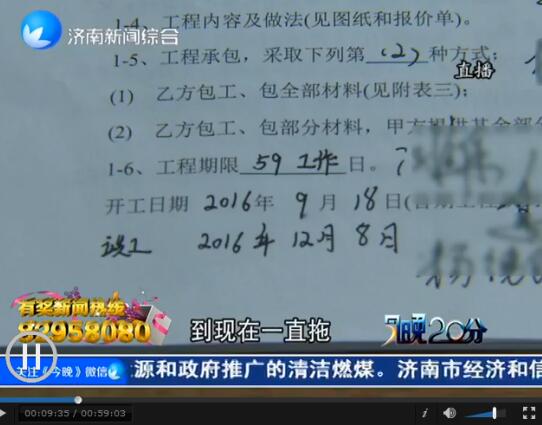 1-4、工程内容及做法(见图纸和报价单)。
济南新闻综合
1-5、工程承包，采取下列第(2)种方式；
直播
(1) 乙方包工、包全部材料(见附表三)；
(2) 乙方包工、包部分材料，甲方提供其余部
1-6、工程期限 59 工作 日。
开工日期 2016年 9 月 18日(
2016年 12月 8日
有奖新闻热线
82958080
到现在一直拖
今晚20分
关注《今晚》微信
源和政府推广的清洁燃煤。济南市经济和信
00:09:35 / 00:59:03